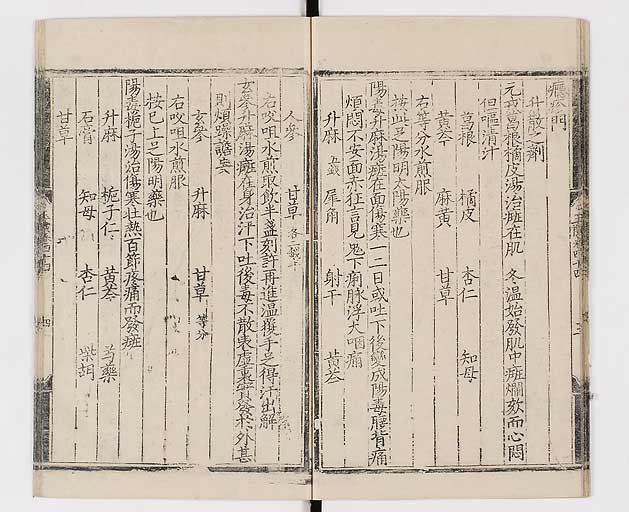 癍疹門
升散之劑
元戎葛根橘皮湯治癍在肌　冬溫始發肌中癍爛欬而心悶
但嘔清汁
葛根　橘皮　杏仁　知母
黃芩　麻黃　甘草
右等分水煎服
按此足陽明太陽藥也
陽毒升麻湯癍在面傷寒一二日或吐下後變成陽毒腰背痛
煩悶不安面赤狂言見鬼下痢脉浮大咽痛
升麻　犀角　射干　黃芩
人參　甘草
右㕮咀水煎取飲半盞刻許再進溫覆手足得汗出解
玄參升麻湯癍在身治汗下吐後毒不散表虛裏實發於外甚
則煩躁譫妄
玄參　升麻　甘草 等分
右㕮咀水煎服
按已上足陽明藥也
陽毒梔子湯治傷寒壯熱百節疼痛而發癍
升麻　梔子仁　黃芩　芍藥
石膏　知母　杏仁　柴胡
甘草